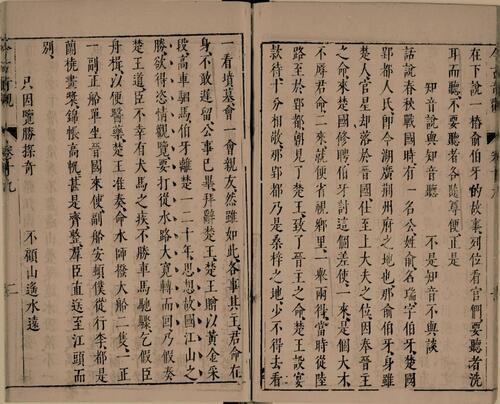 在下說一樁俞伯牙的故事列位看官們要聽者洗
耳而聽不要聽者各隨尊便正是
知音說與知音聽　不是知音不與談
話說春秋戰國時有一名公姓俞名瑞字伯牙楚國
郢都人氏卽今湖廣荊州府之地也那俞伯牙身雖
楚人官星却落於晉國仕至上大夫之位因奉晉王
之命來楚國修聘伯牙討這個差使一來是個大才
不辱君命二來就便省視鄉里一舉兩得當時從陸
路至於郢都朝見了楚王致了晉王之命楚王設宴
款待十分相敬那郢都乃是桑梓之地少不得去看
一看墳墓會一會親友然雖如此各事其主君命在
身不敢遲留公事已畢拜辭楚王楚王贈以黃金采
段高車駟馬伯牙離楚一二十年思想故國江山之
勝欲得恣情觀覽要打從水路大寬轉而回乃假奏
楚王道臣不幸有犬馬之疾不勝車馬馳驟乞假臣
舟楫以便醫藥楚王准奏命水師撥大船二隻一正
一副正船單坐晉國來使副船安頓僕從行李都是
蘭橈畫槳錦帳高帆甚是齊整羣臣直送至江頭而
別
只因覽勝探奇　不顧山遙水遠
二